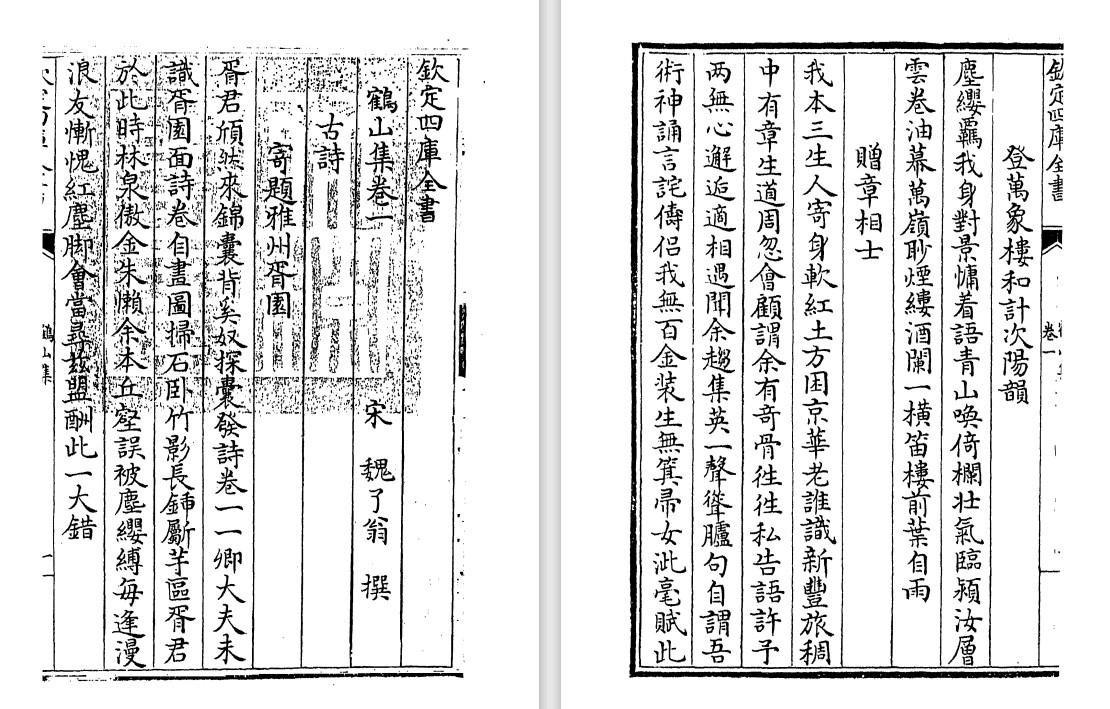 欽定四庫全書
鶴山集卷一 宋 魏了翁 撰
古詩
寄題雅州胥園
胥君頎然來錦囊背奚奴探囊發詩卷一一卿大夫未
識胥園面詩卷自畫圖掃石卧竹影長鍤斸芋區胥君
於此時林泉傲金朱懶余本丘壑誤被塵纓縛每逢漫
浪友慚愧紅塵脚會當尋兹盟酬此一大錯
鶴山集 一
欽定四庫全書 卷一
登萬象樓和計次陽韻
塵纓羈我身對景慵着語青山喚倚欄壮氣臨潁汝層
雲卷油幕萬嶺眇煙縷酒闌一横笛樓前葉自雨
贈章相士
我本三生人寄身軟紅土方困京華老誰識新豐旅稠
中有章生道周忽會顧謂余有竒骨徃徃私告語許予
两無心邂逅適相遇聞余趨集英一聲聳臚句自謂吾
術神誦言詫儔侣我無百金装生無箕帚女泚毫賦此